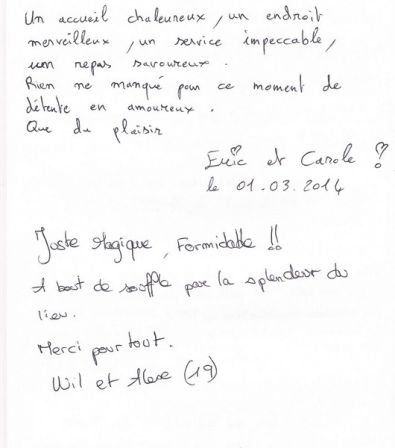 Un accueil chaleureux, un endroit
merveilleux, un service impeccable,
un repas savoureux.
Rien ne manque pour ce moment de
détente en amoureux.
Que du plaisir
Eric et Carole
le 01.03.2014
Juste Magique, Formidable !!
A bout de souffle par la splendeur du
lieu.
Merci pour tout.
Wil et Alexe (19)